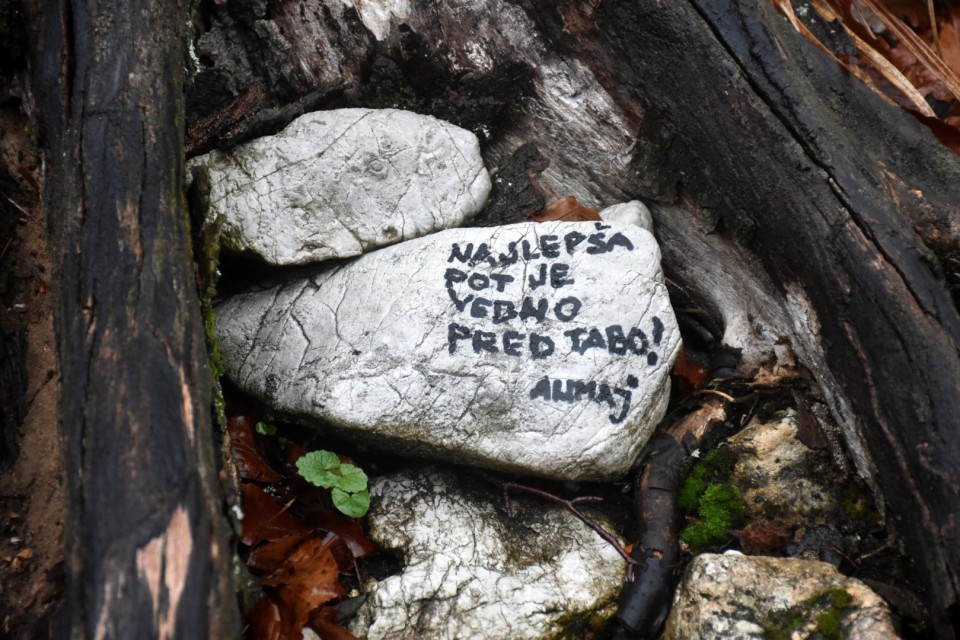 NAJLEPŠA
POT JE
VEDNO
PRED TABO!